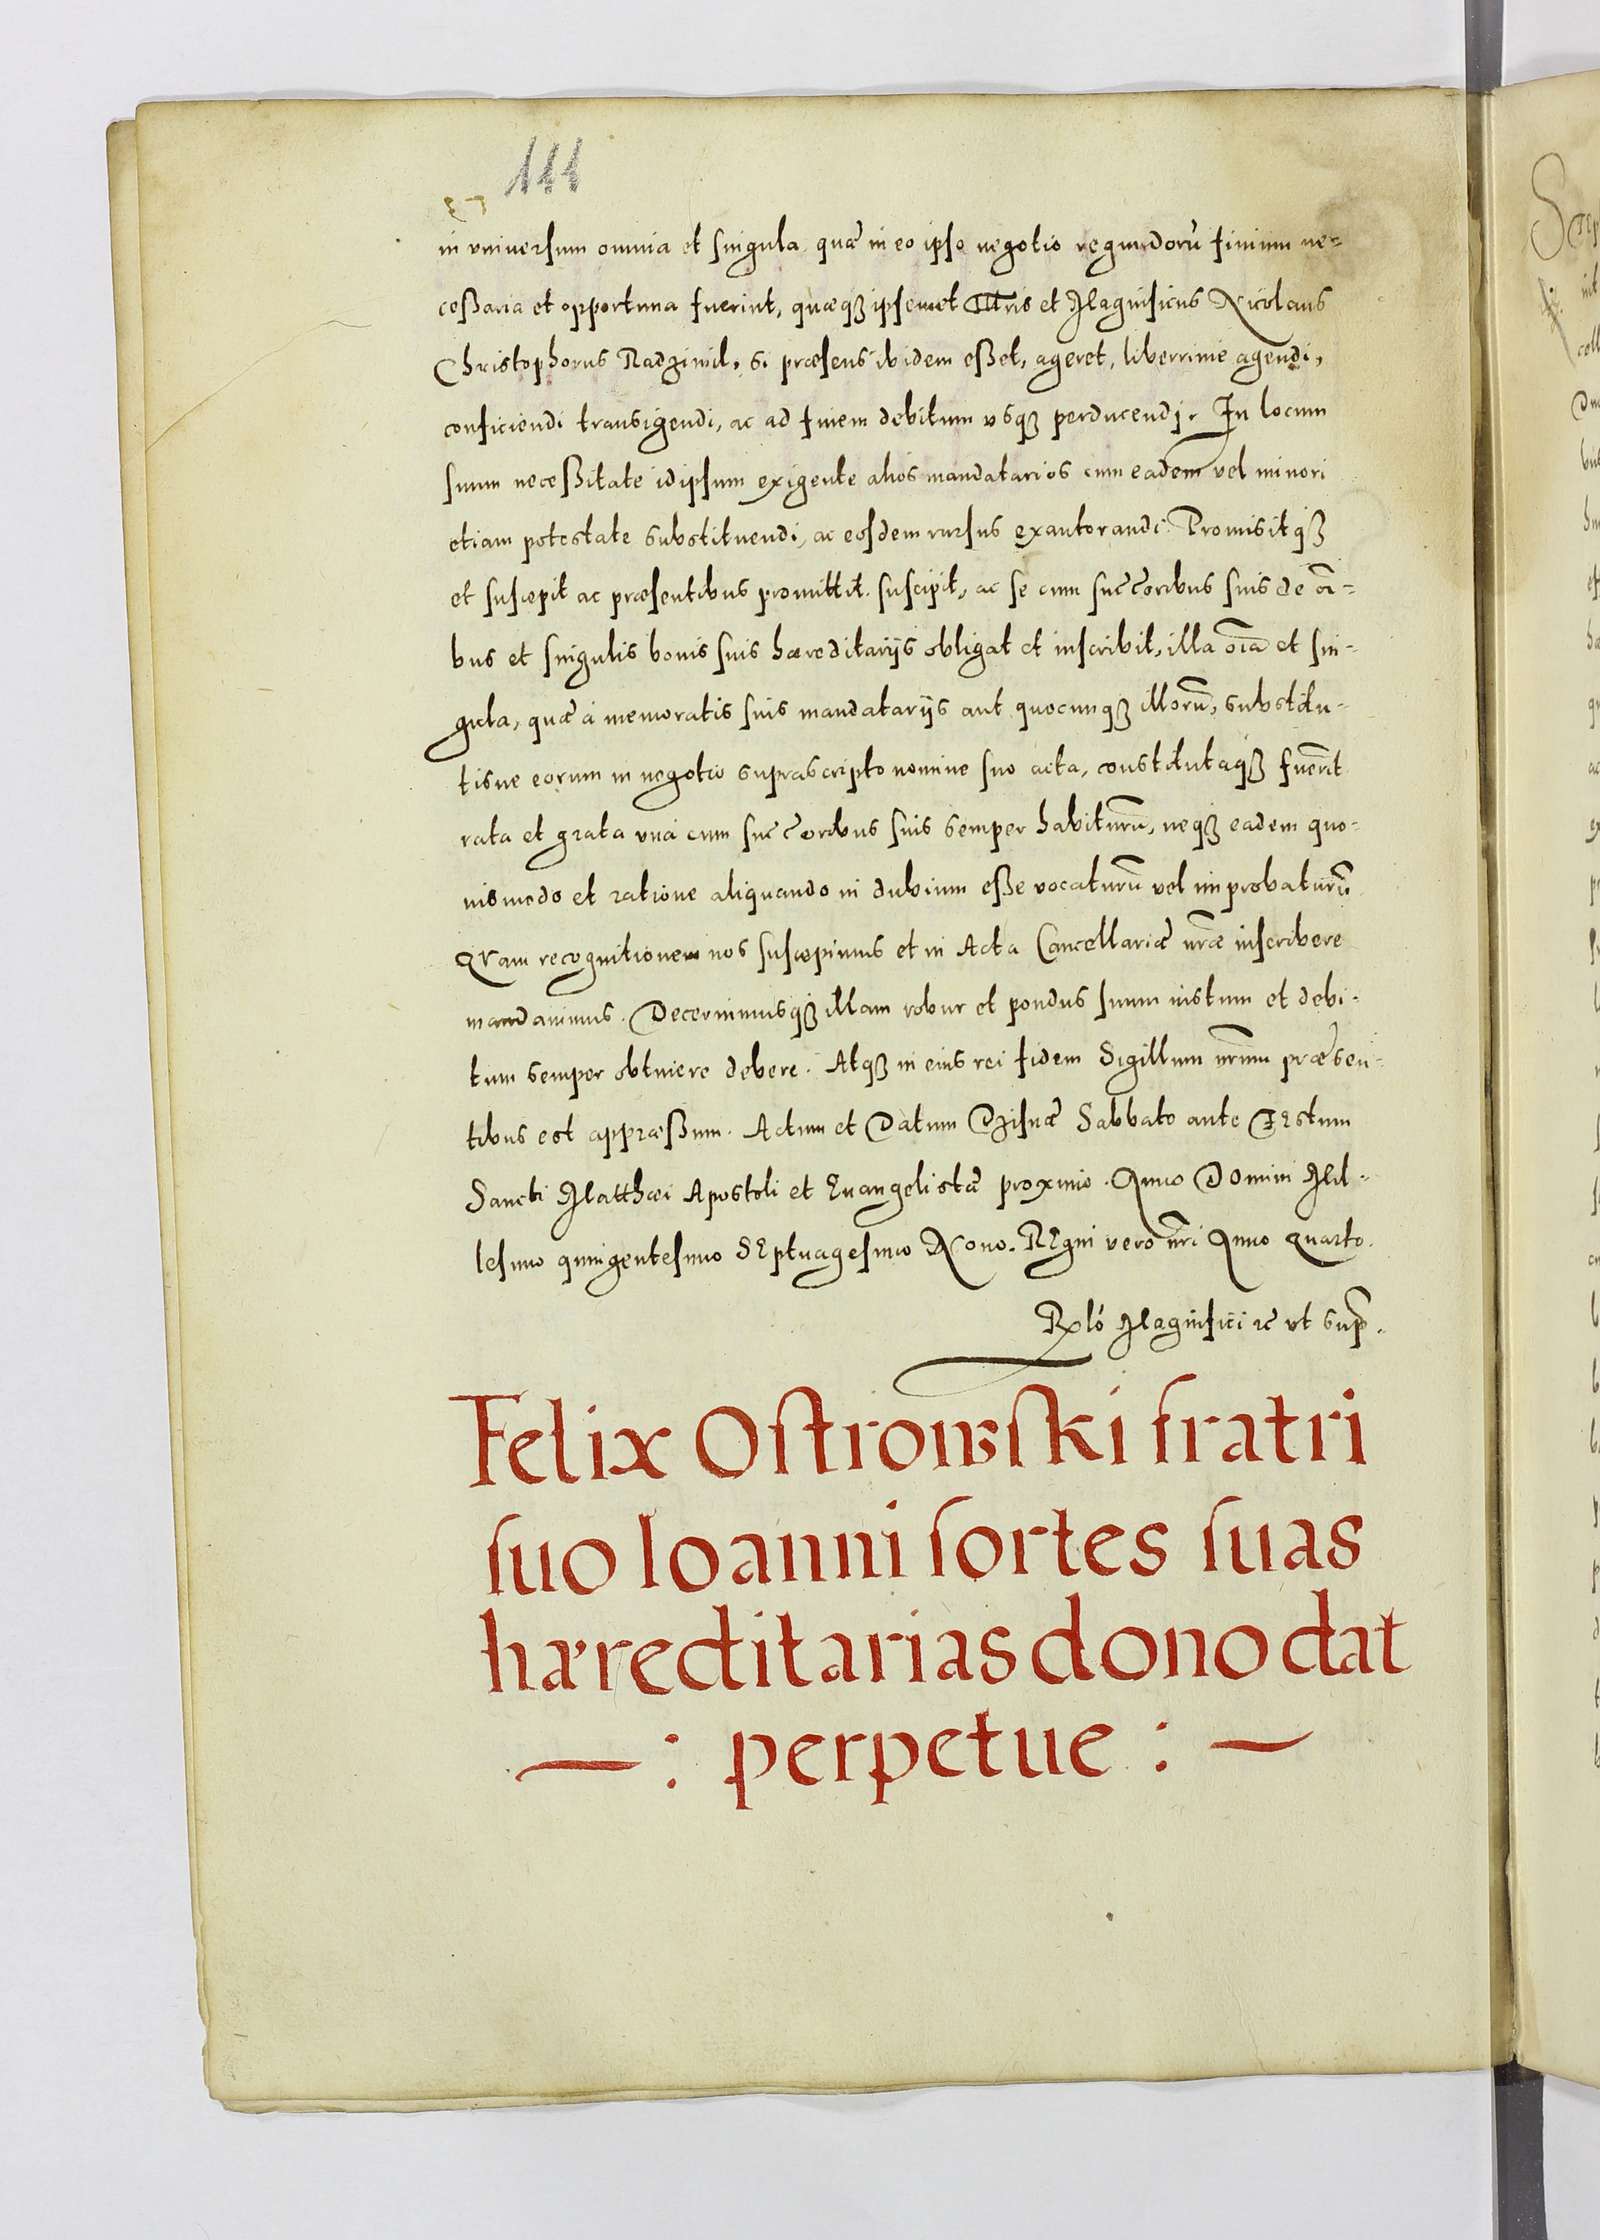 111
in vniversum omnia et singula quæ in eo ipso negotio regundorũ finium ne-
ceßaria et opportuna fuerint, quæqȝ ipsemet Illris et Magnificus Nicolaus
Christophorus Radziwil, si præsens ibidem eßet, ageret, liberrime agendi,
conficiendi transigendi, ac ad finem debitum vsqȝ perducendi. In locum
suum neceßitate idipsum exigente alios mandatarios cum eadem vel minori
etiam potestate substituendi, ac eosdem rursus exautorandi. Promisitqȝ
et suscepit ac præsentibus promittit suscipit, ac se cum succoribus suis de oĩ-
bus et singulis bonis suis hæreditarijs obligat et inscribit, illa oĩa et sin-
gula, quæ à memoratis suis mandatarijs aut quocunqȝ illorũ, substitu-
tisue eorum in negotio suprascripto nomine suo acta, constitutaqȝ fuerĩt
rata et grata vnà cum succoribus suis semper habiturũ, neqȝ eadem quo-
uismodo et ratione aliquando in dubium eße vocaturũ vel improbaturũ
Qvam recognitionem nos suscepimus et in Acta Cancellariæ nr̃æ inscribere
mandauimus. Decernimusqȝ illam robur et pondus suum iustum et debi-
tum semper obtinere debere. Atqȝ in eius rei fidem Sigillum nr̃um præsen-
tibus est appræßum. Actum et Datum Dzisnæ Sabbato ante Festum
Sancti Matthæi Apostoli et Euangelistæ proximo. Anno Domini Mil-
lesimo quingentesimo SEptuagesimo Nono. REgni vero nr̃i Anno quarto.
Rló Magnifici ac vt sup̃.
Felix Ostrowski fratri
suo Ioanni sortes suas
hæreditarias dono dat
— : perpetue : —